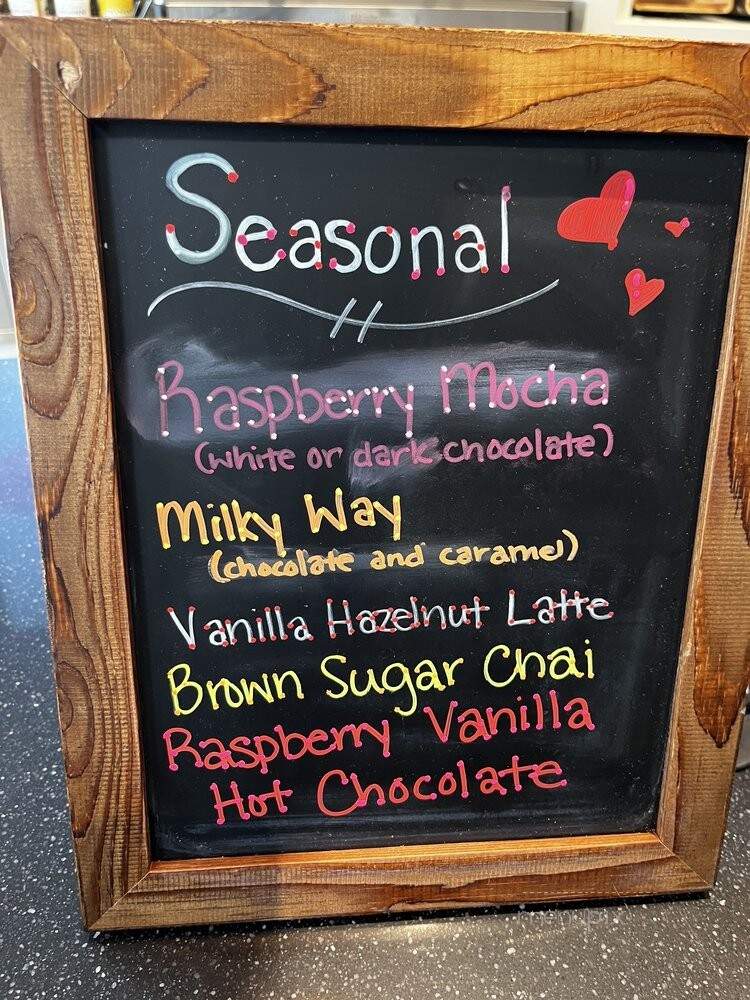 Seasonal
Raspberry Mocha
(white or dark chocolate)
Milky Way
(chocolate and caramel)
Vanilla Hazelnut Latte
Brown Sugar Chai
Raspberry Vanilla
Hot Chocolate